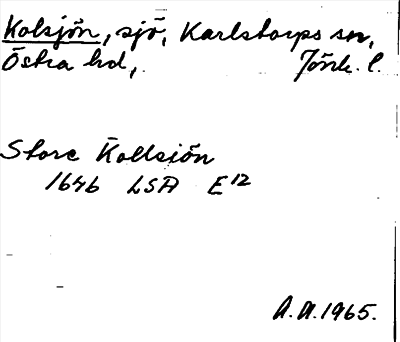 Kolsjön, sjö, Karlstorps sn,
Östra hd, Jönk. l.
Store Kollsiön
1646 LSA E12
A.A. 1965.